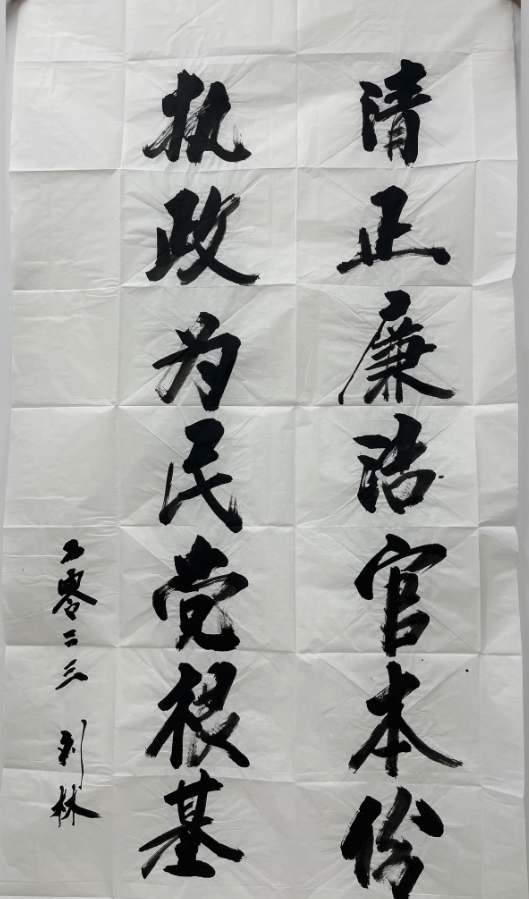 清正廉洁官本份
执政为民党根基
二零二三 刘林